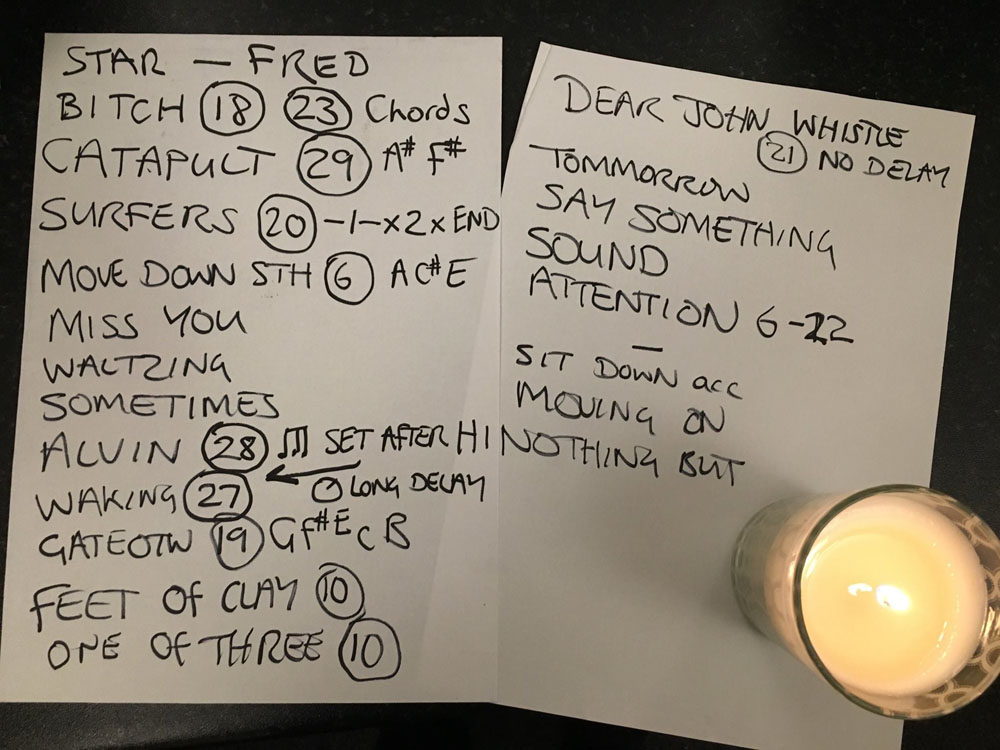 STAR — FRED
BITCH 18 23 Chords
CATAPULT 29 A# F#
SURFERS 20 -1-x2x END
MOVE DOWN STH 6 A C# E
MISS YOU
WALTZING
SOMETIMES
ALVIN 28 SET AFTER HI
WAKING 27 LONG DELAY
GATEOTW 19 G F# E C B
FEET OF CLAY 10
ONE OF THREE 10
DEAR JOHN WHISTLE
21 NO DELAY
TOMMORROW
SAY SOMETHING
SOUND
ATTENTION 6-22
—
SIT DOWN acc
MOVING ON
NOTHING BUT